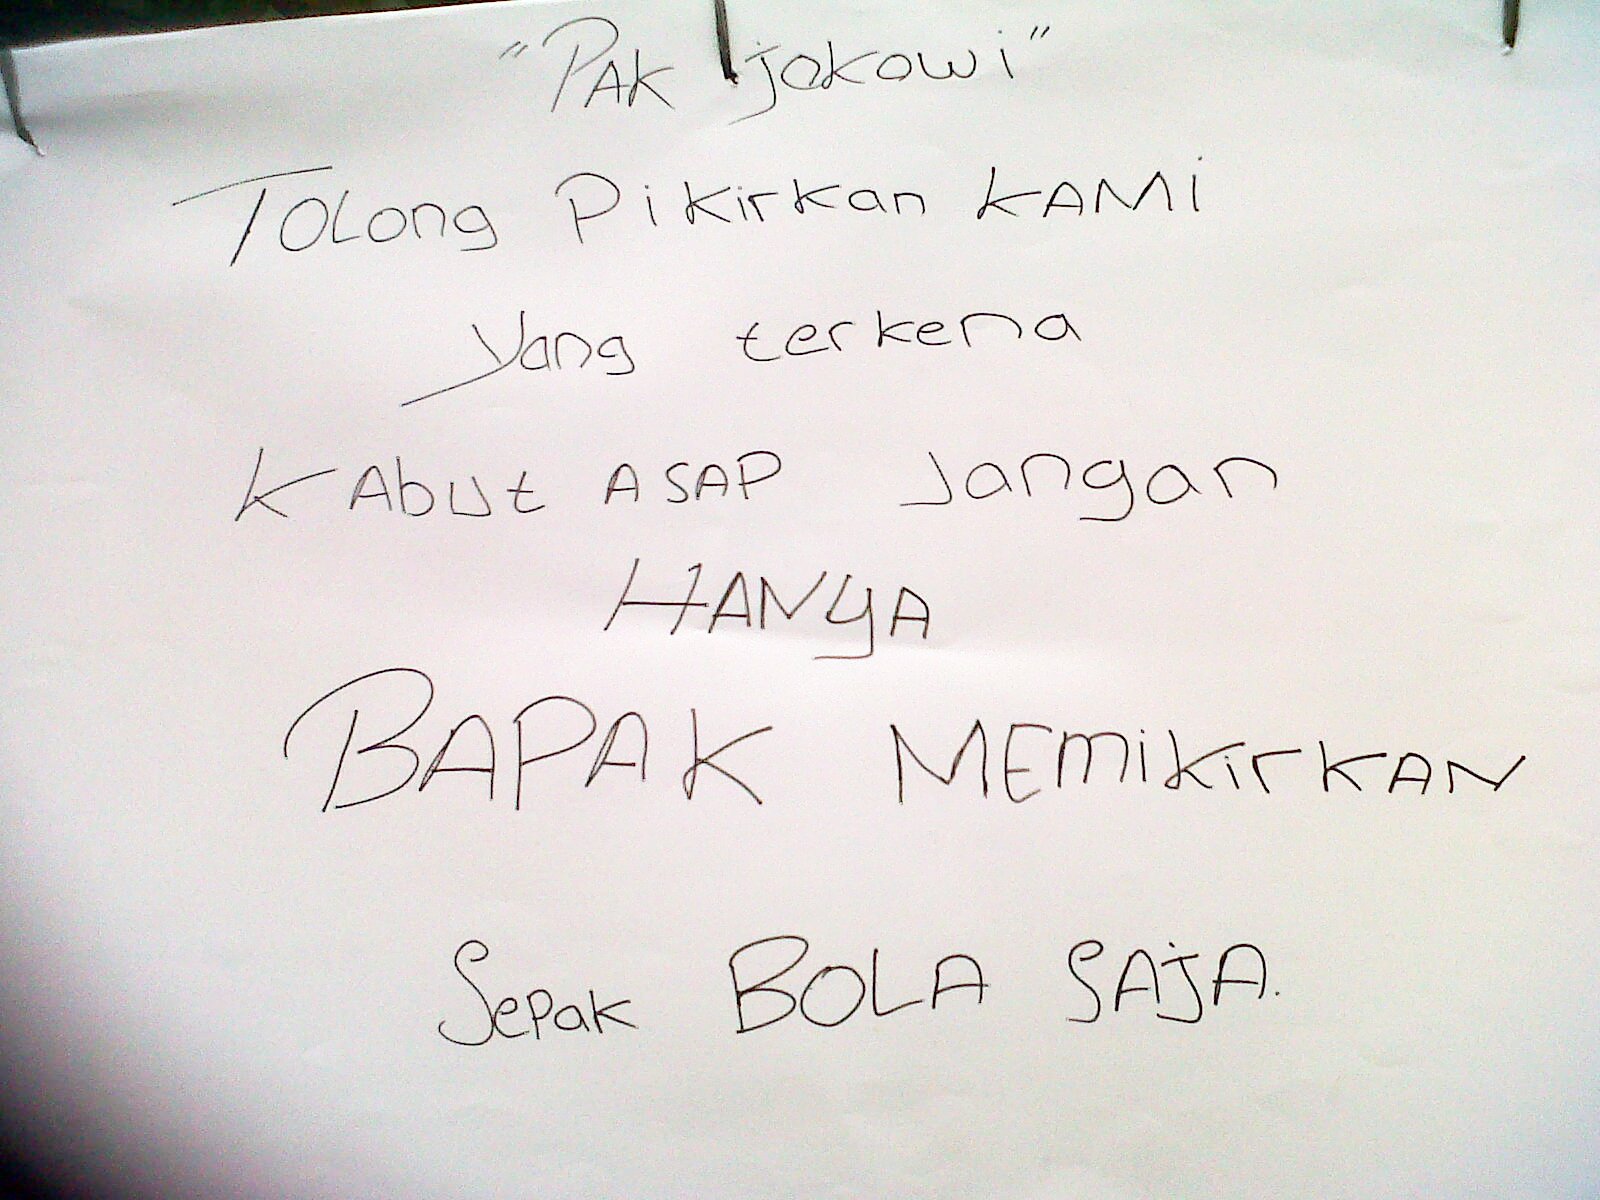 "PAK jokowi"
TOLong PiKirKan KAMi
yang terkena
KAbut ASAP Jangan
HANyA
BAPAK MEmiKirKAN
SePak BOLA SAJA.